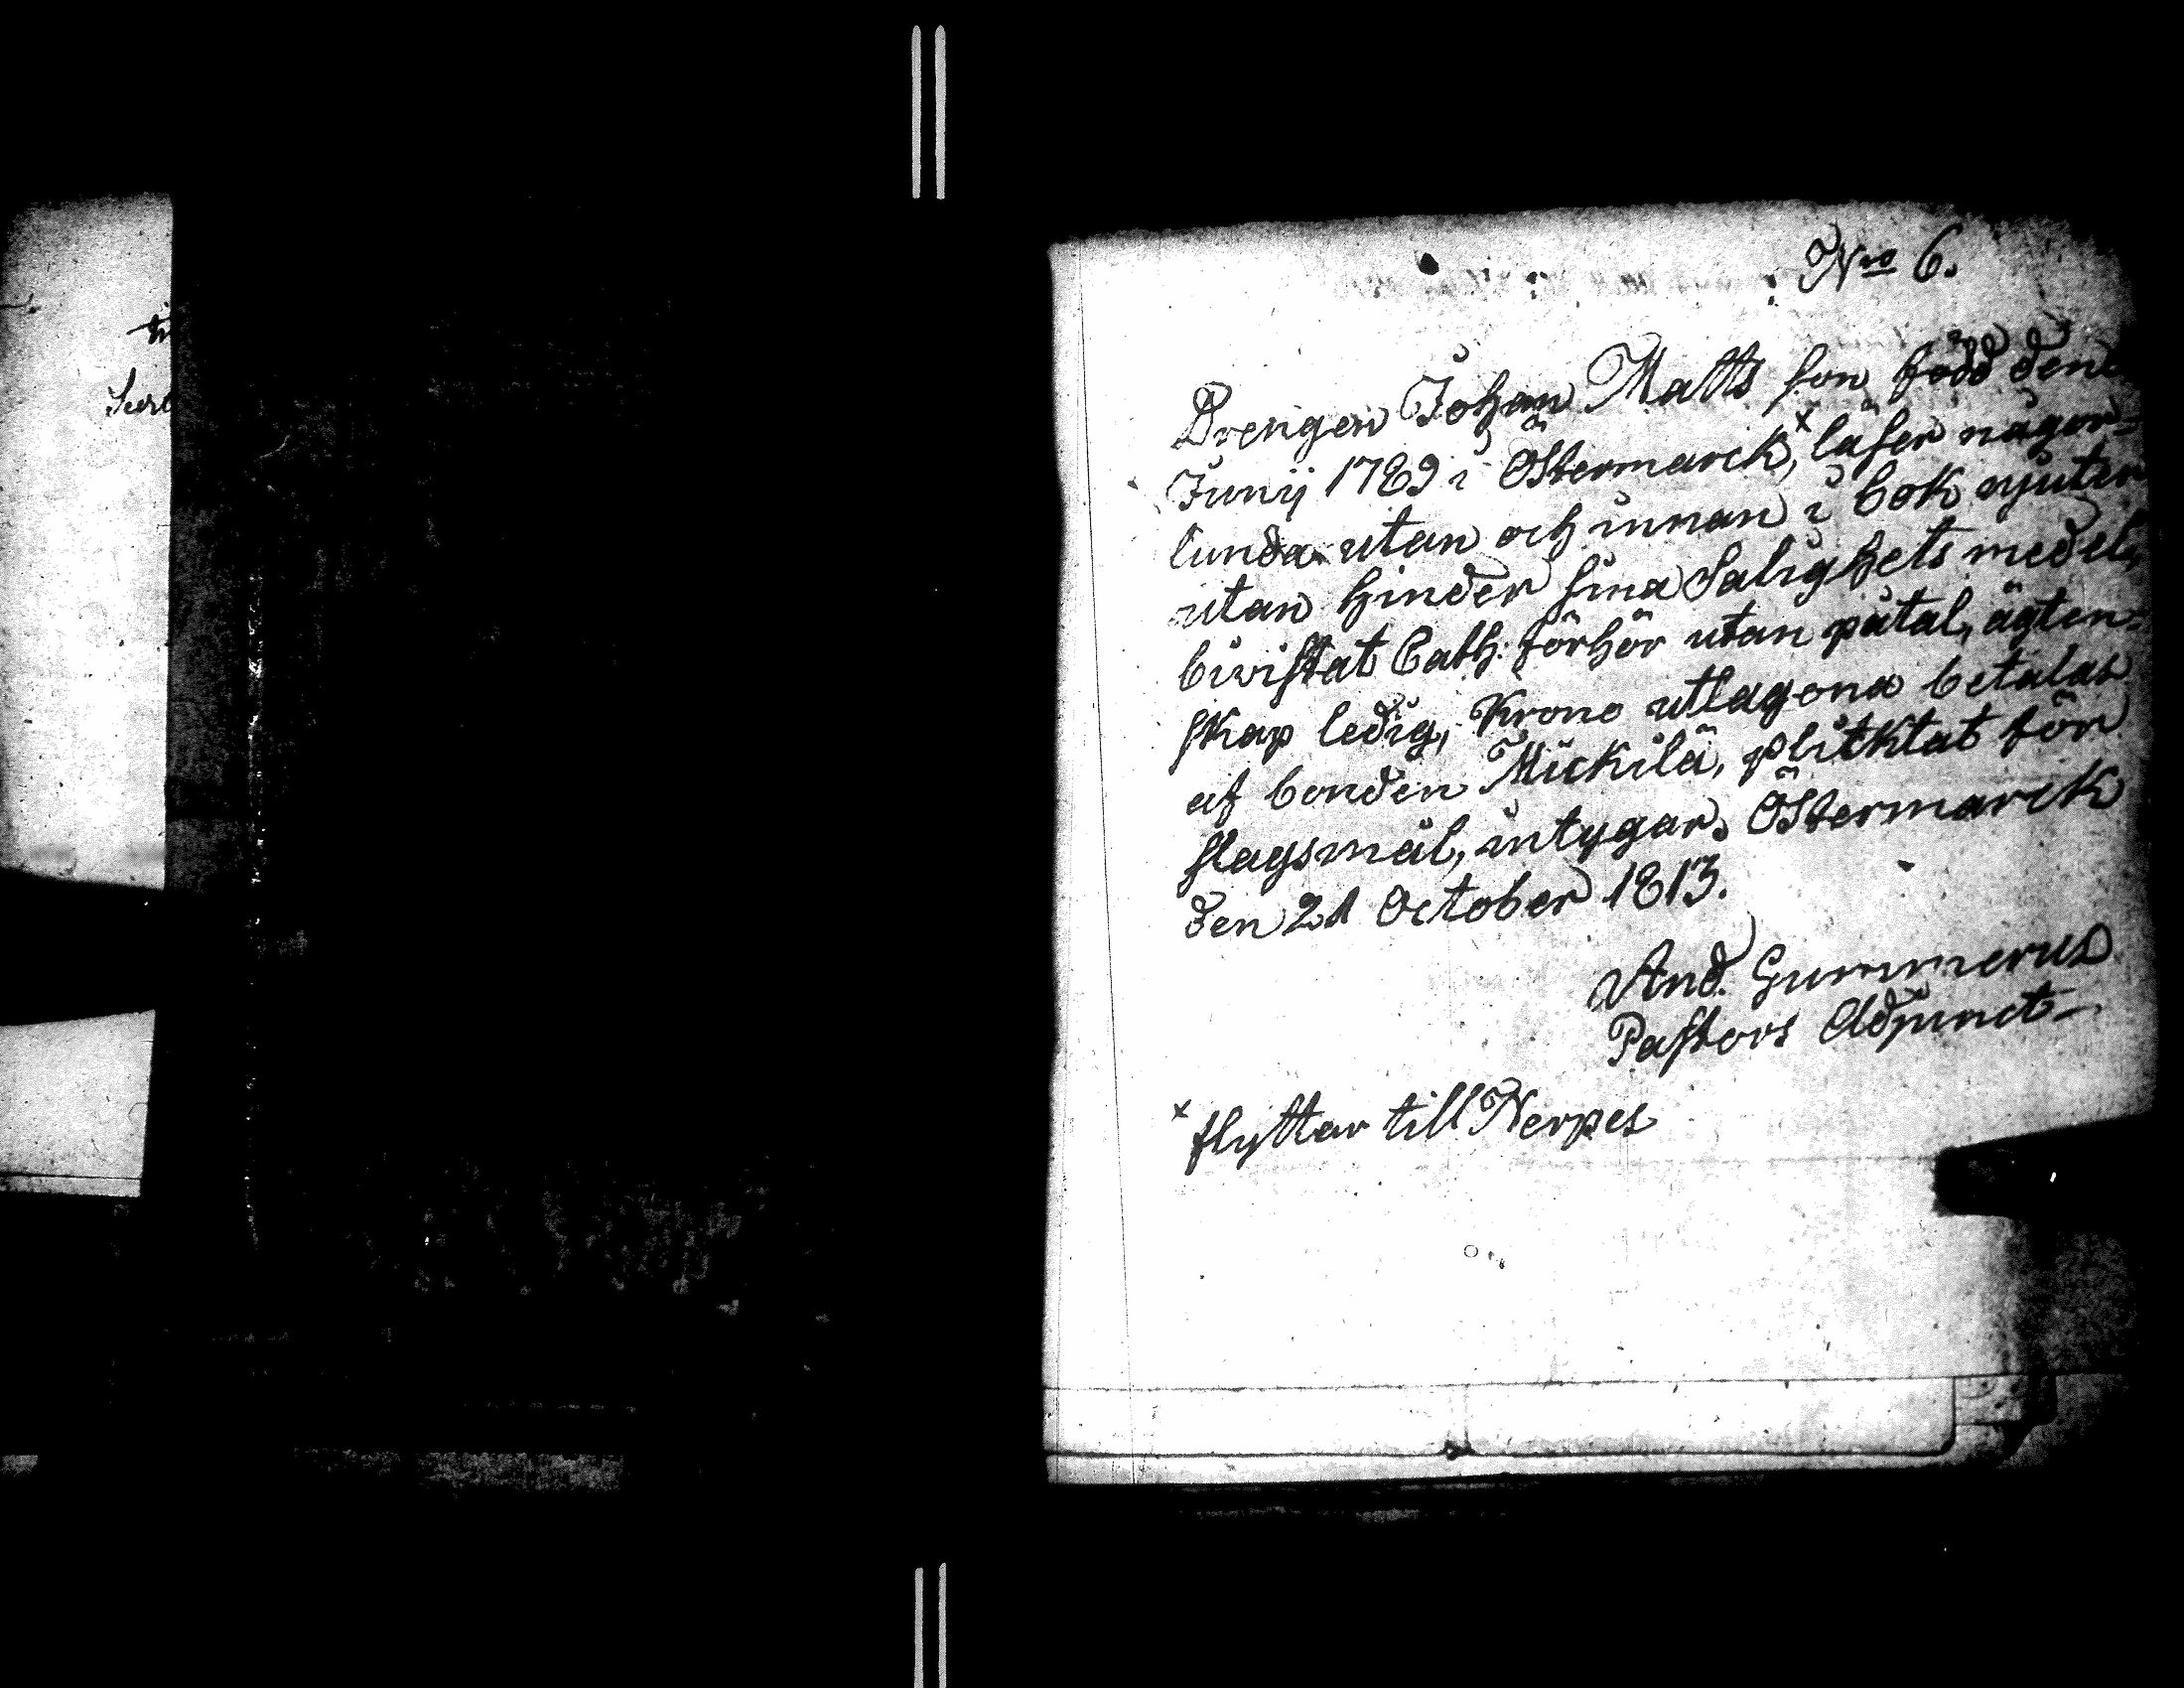 Nro 6.
Drengen Johan Matts son född den
Junij 1789 i Östermarck,x läser någor=
lunda utan och innan i bok njuter
utan hinder sina Salighets medel,
bivistat Cath: förhör utan påtal, ägten=
skap ledig, Krono utlagorna betalas
af bonden Mickilä, plicktat för
slagsmål, intygar. Östermarck
den 21 October 1813.
And. Gummerus
Pastors Adjunct
x flyttar till Nerpes